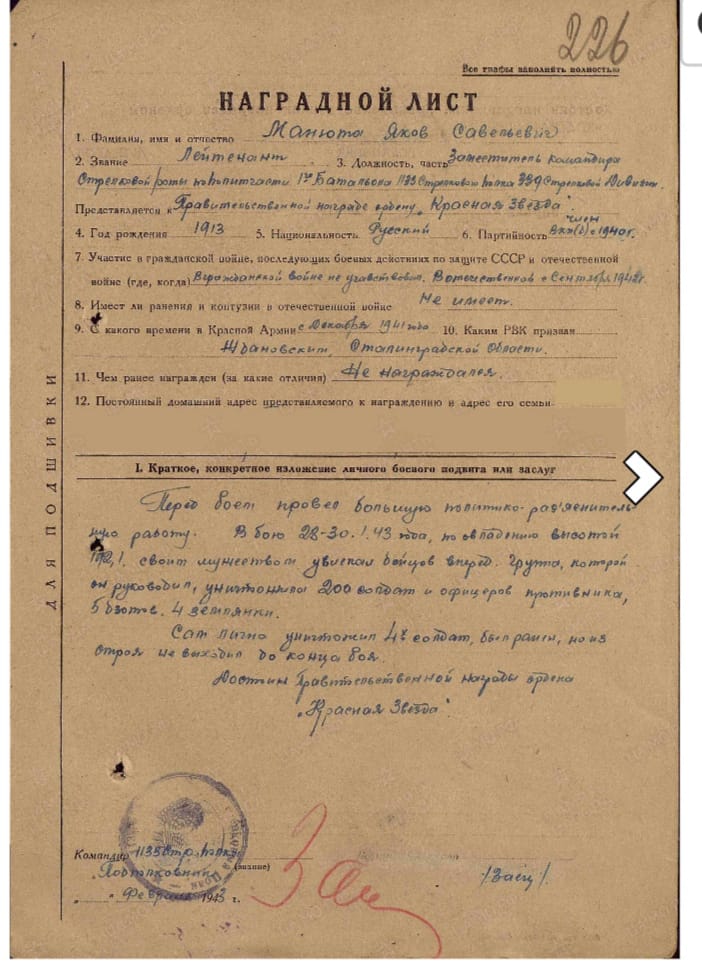 226
Все графы заполнять полностью
НАГРАДНОЙ ЛИСТ
1. Фамилия, имя и отчество Манюта Яков Савельевич
2. Звание Лейтенант 3. Должность, часть Заместитель командира
Стрелковой роты по политчасти 1го Батальона 1133 Стрелкового полка 339 Стрелковой Дивизии.
Представляется к Правительственной награде ордену „Красная Звезда".
4. Год рождения 1913 5. Национальность Русский 6. Партийность член ВКП(б) с 1940г.
7. Участие в гражданской войне, последующих боевых действиях по защите СССР и отечественной
войне (где, когда) В гражданской войне не участвовал. В отечественной с Сентября 1942г.
8. Имеет ли ранения и контузии в отечественной войне Не имеет.
9. С какого времени в Красной Армии с Декабря 1941 года 10. Каким РВК призван
Ждановским, Сталинградской области.
11. Чем ранее награжден (за какие отличия) Не награждался.
12. Постоянный домашний адрес представляемого к награждению и адрес его семьи
I. Краткое, конкретное изложение личного боевого подвига или заслуг
Перед боем провел большую политико-раз'яснитель-
ную работу. В бою 28-30.1.43 года, по овладению высотой
192,1. своим мужеством увлекал бойцов вперед. Группа, которой
он руководил, уничтожила 200 солдат и офицеров противника,
5 дзотов. 4 землянки.
Сам лично уничтожил 4х солдат, был ранен, но из
строя не выходил до конца боя.
Достоин Правительственной награды ордена
„Красная Звезда".
Командир 1133 Стр. полка
Подполковник (звание) /Заец/.
„ " Февраля 1943 г.
ДЛЯ ПОДШИВКИ